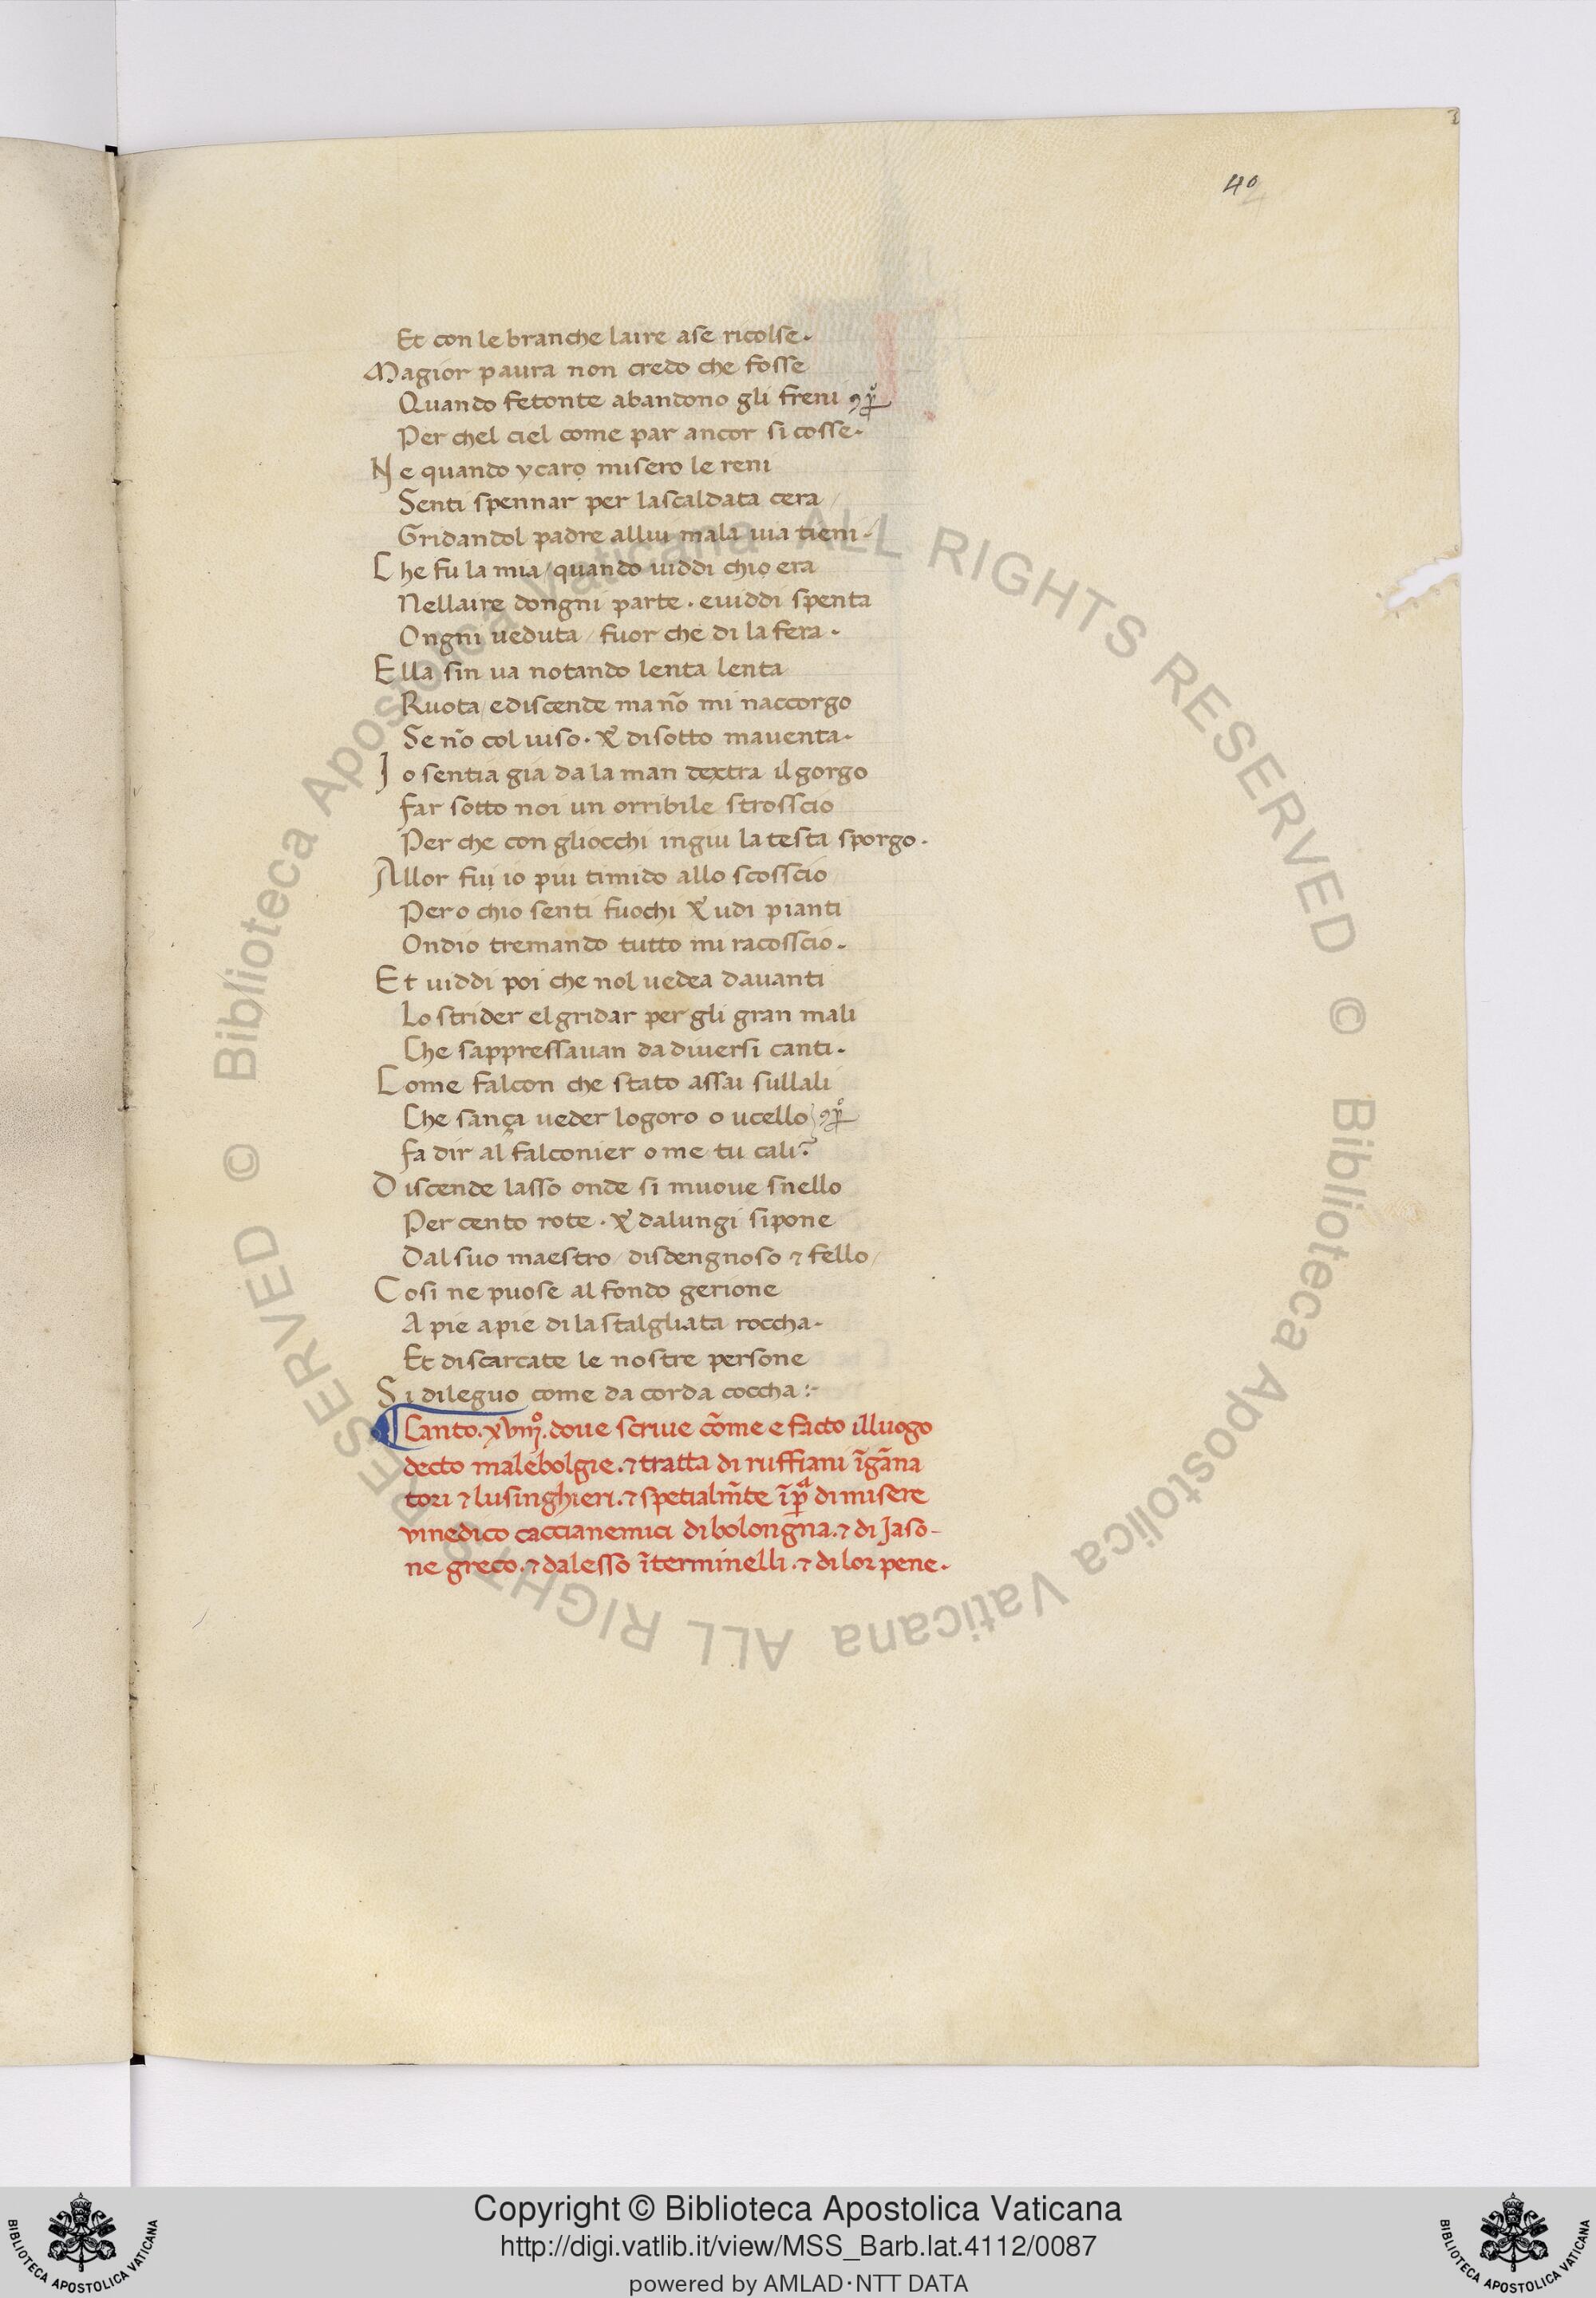 40
Et con le branche laire ase ricolse.
Magior paura non credo che fosse
Quando fetonte abandono gli freni
Per chel ciel come par ancor si cosse.
Ne quando ycaro misero le reni
Senti spennar per lascaldata cera
Gridandol padre allui mala uia tieni.
Che fu la mia / quando uiddi chio era
Nellaire dongni parte. euiddi spenta
Ongni ueduta / fuor che di la fera.
Ella sin ua notando lenta lenta
Ruota / ediscende ma nõ mi naccorgo
Se nõ col uiso. & disotto mauenta.
Io sentia gia da la man dextra il gorgo
Far sotto noi un orribile strosscio
Per che con gliocchi ingiu la testa sporgo.
Allor fui io piu timido allo scosscio
Pero chio senti fuochi & udi pianti
Ondio tremando tutto mi racosscio.
Et uiddi poi che nol uedea dauanti
Lo strider elgridar per gli gran mali
Che sappressauan da diuersi canti.
Come falcon che stato assai sullali
Che sança ueder logoro o ucello
Fa dir al falconier o me tu cali?
Discende lasso onde si muoue snello
Per cento rote. & dalungi sipone
Dal suo maestro / disdengnoso ⁊ fello /
Cosi ne puose al fondo gerione
A pie apie di la stalgliata roccha.
Et discarcate le nostre persone
Si dileguo come da corda coccha:-
Canto. xviijº. doue scriue cõme e facto illuogo
decto malebolgie. ⁊ tratta di ruffiani ĩgãna
tori ⁊ lusinghieri. ⁊ spetialm̃te ĩ pª di misere
vinedico caccianemici di bolongna. ⁊ di Jaso-
ne greco. ⁊ dalesso ĩterminelli. ⁊ di lor pene.
© Biblioteca Apostolica Vaticana ALL RIGHTS RESERVED © Biblioteca Apostolica Vaticana ALL RIGHTS RESERVED
Copyright © Biblioteca Apostolica Vaticana
http://digi.vatlib.it/view/MSS_Barb.lat.4112/0087
powered by AMLAD·NTT DATA
BIBLIOTECA APOSTOLICA VATICANA
BIBLIOTECA APOSTOLICA VATICANA